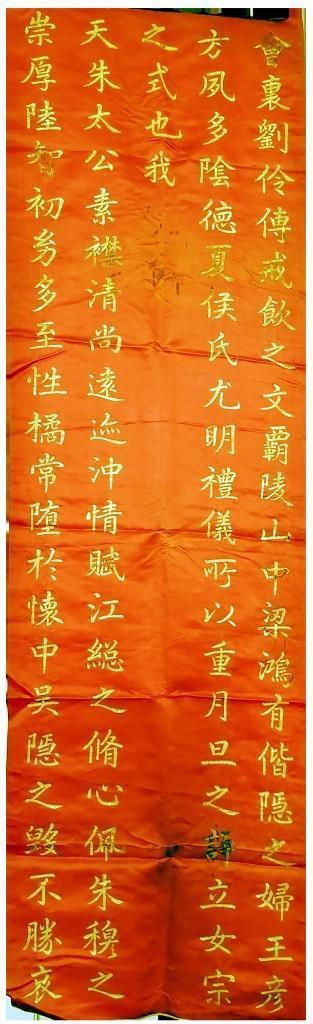 會裏劉伶傳戒飲之文覇陵山中梁鴻有偕隠之婦王彦
方夙多陰德夏侯氏尤明禮儀所以重月旦之評立女宗
之式也我
天朱太公素襟清尚遠迹沖情賦江總之脩心佩朱穆之
崇厚陸初劣多至性橘常堕於懷中吴隠之毀不勝哀